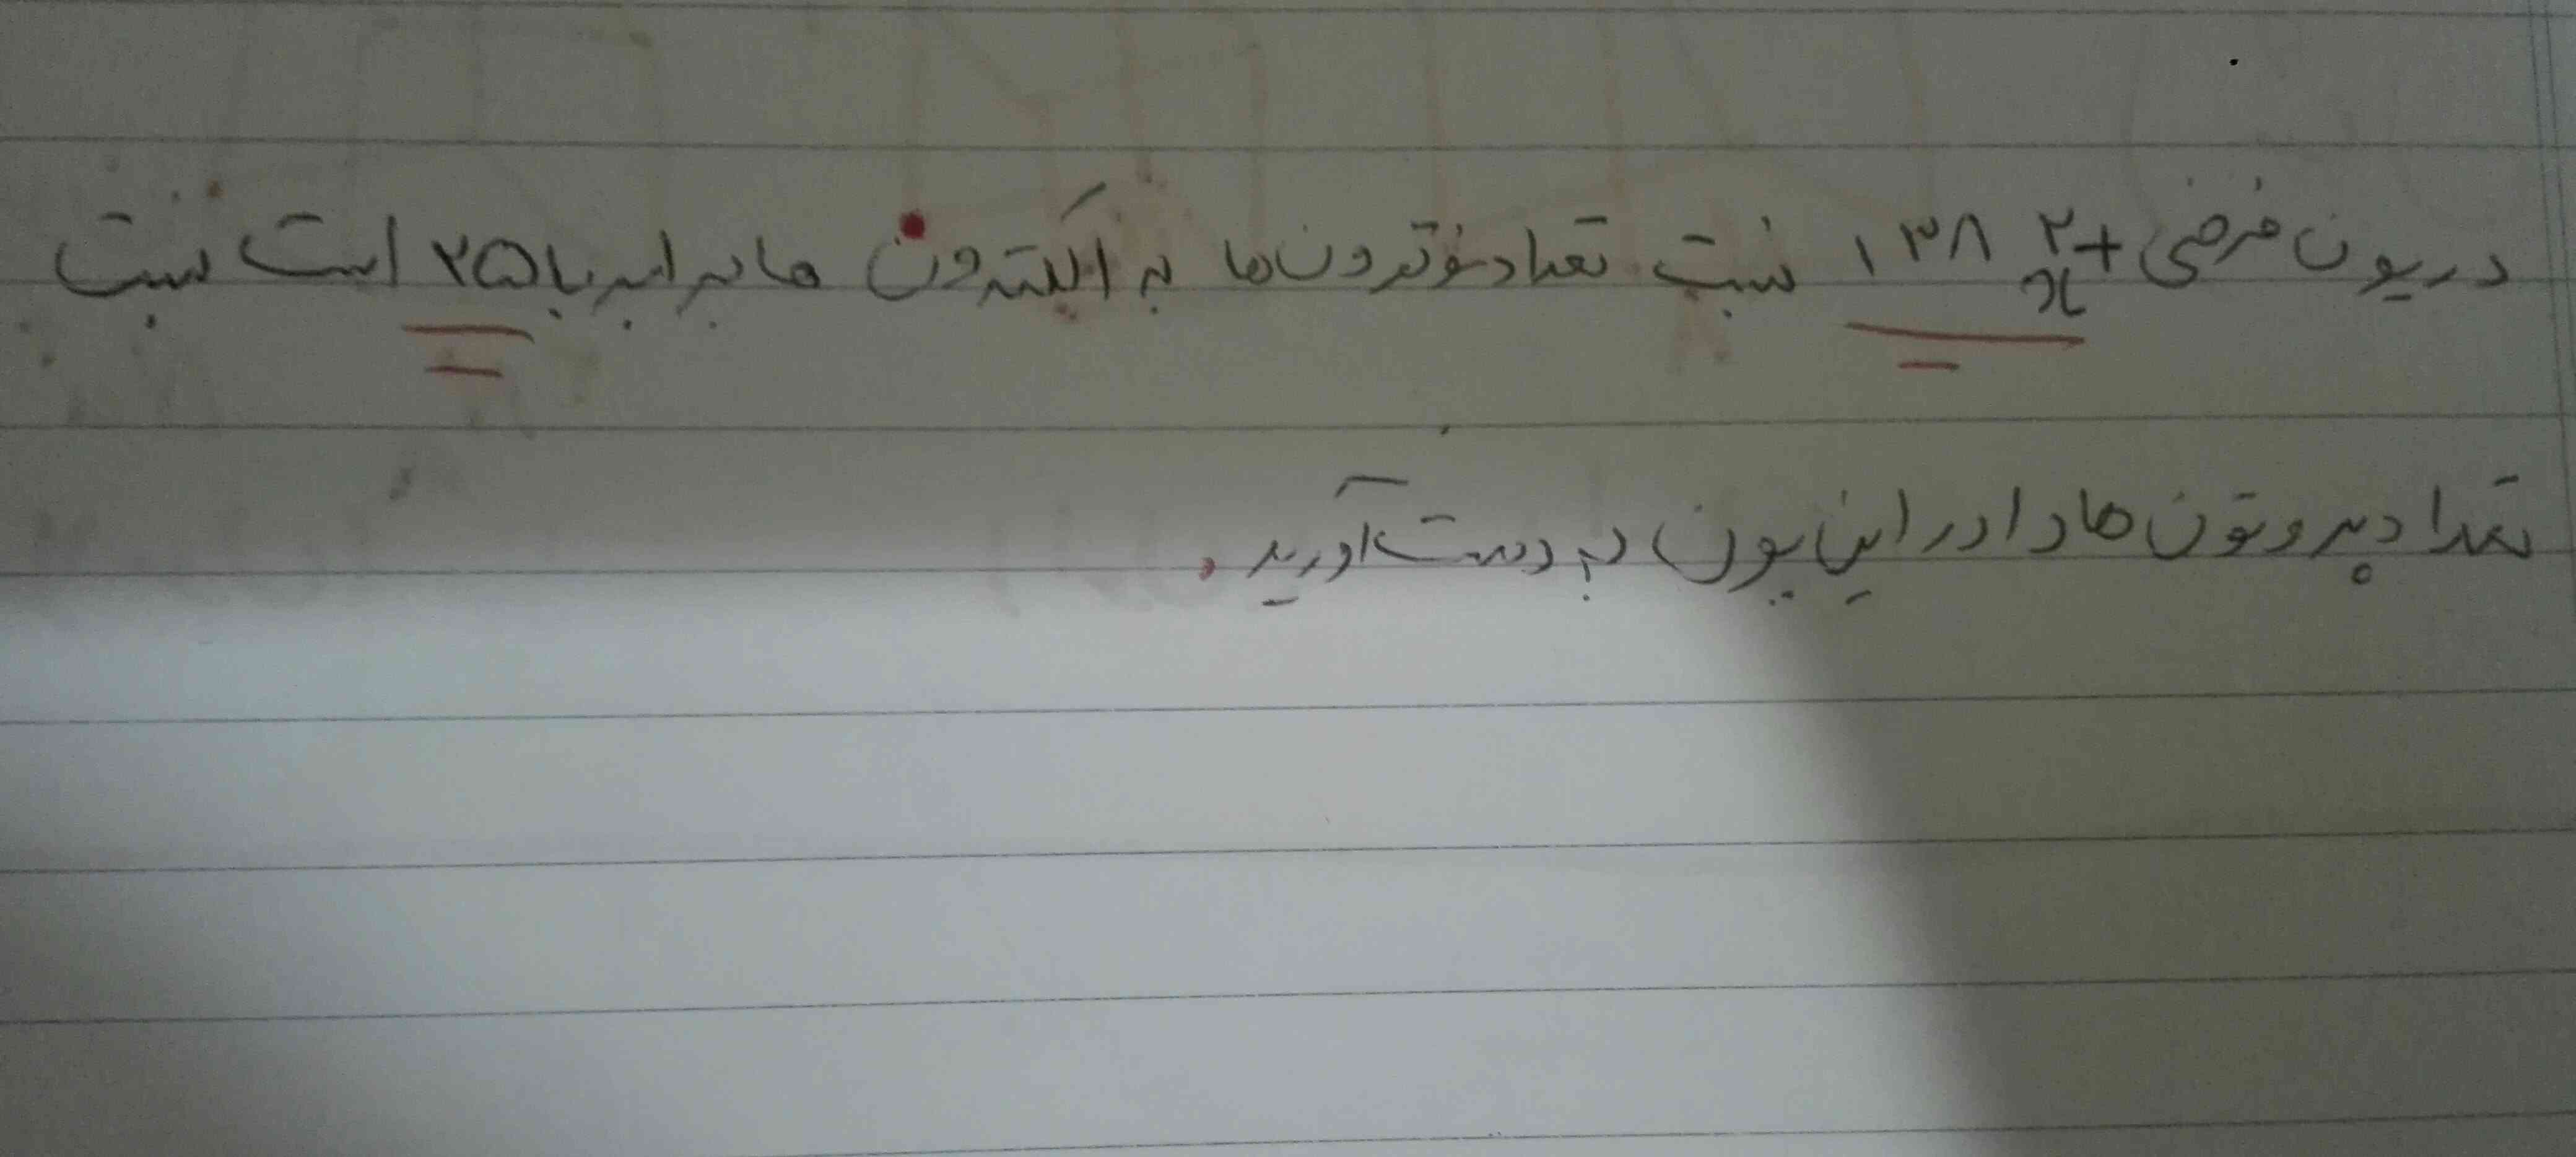 در یون فرضی +۲ x ۱۳۸ نسبت تعداد نوترون ها به الکترون ها برابر با ۲۵ است نسبت
تعداد پروتون ها را در این یون به دست آورید .